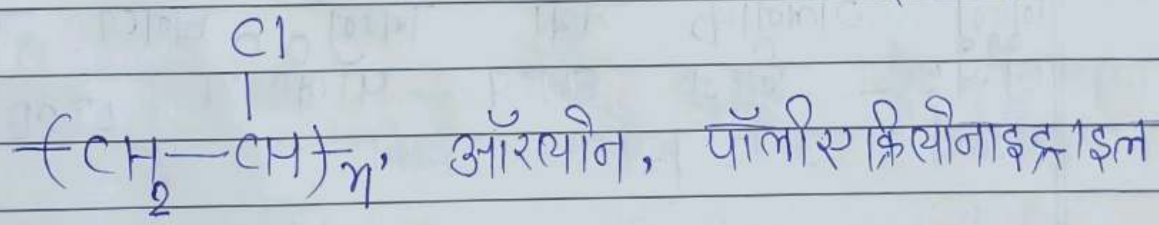 Cl
|
-(CH₂—CH)-n, ऑरल्योन, पॉलीएक्रिल्योनाइट्राइल